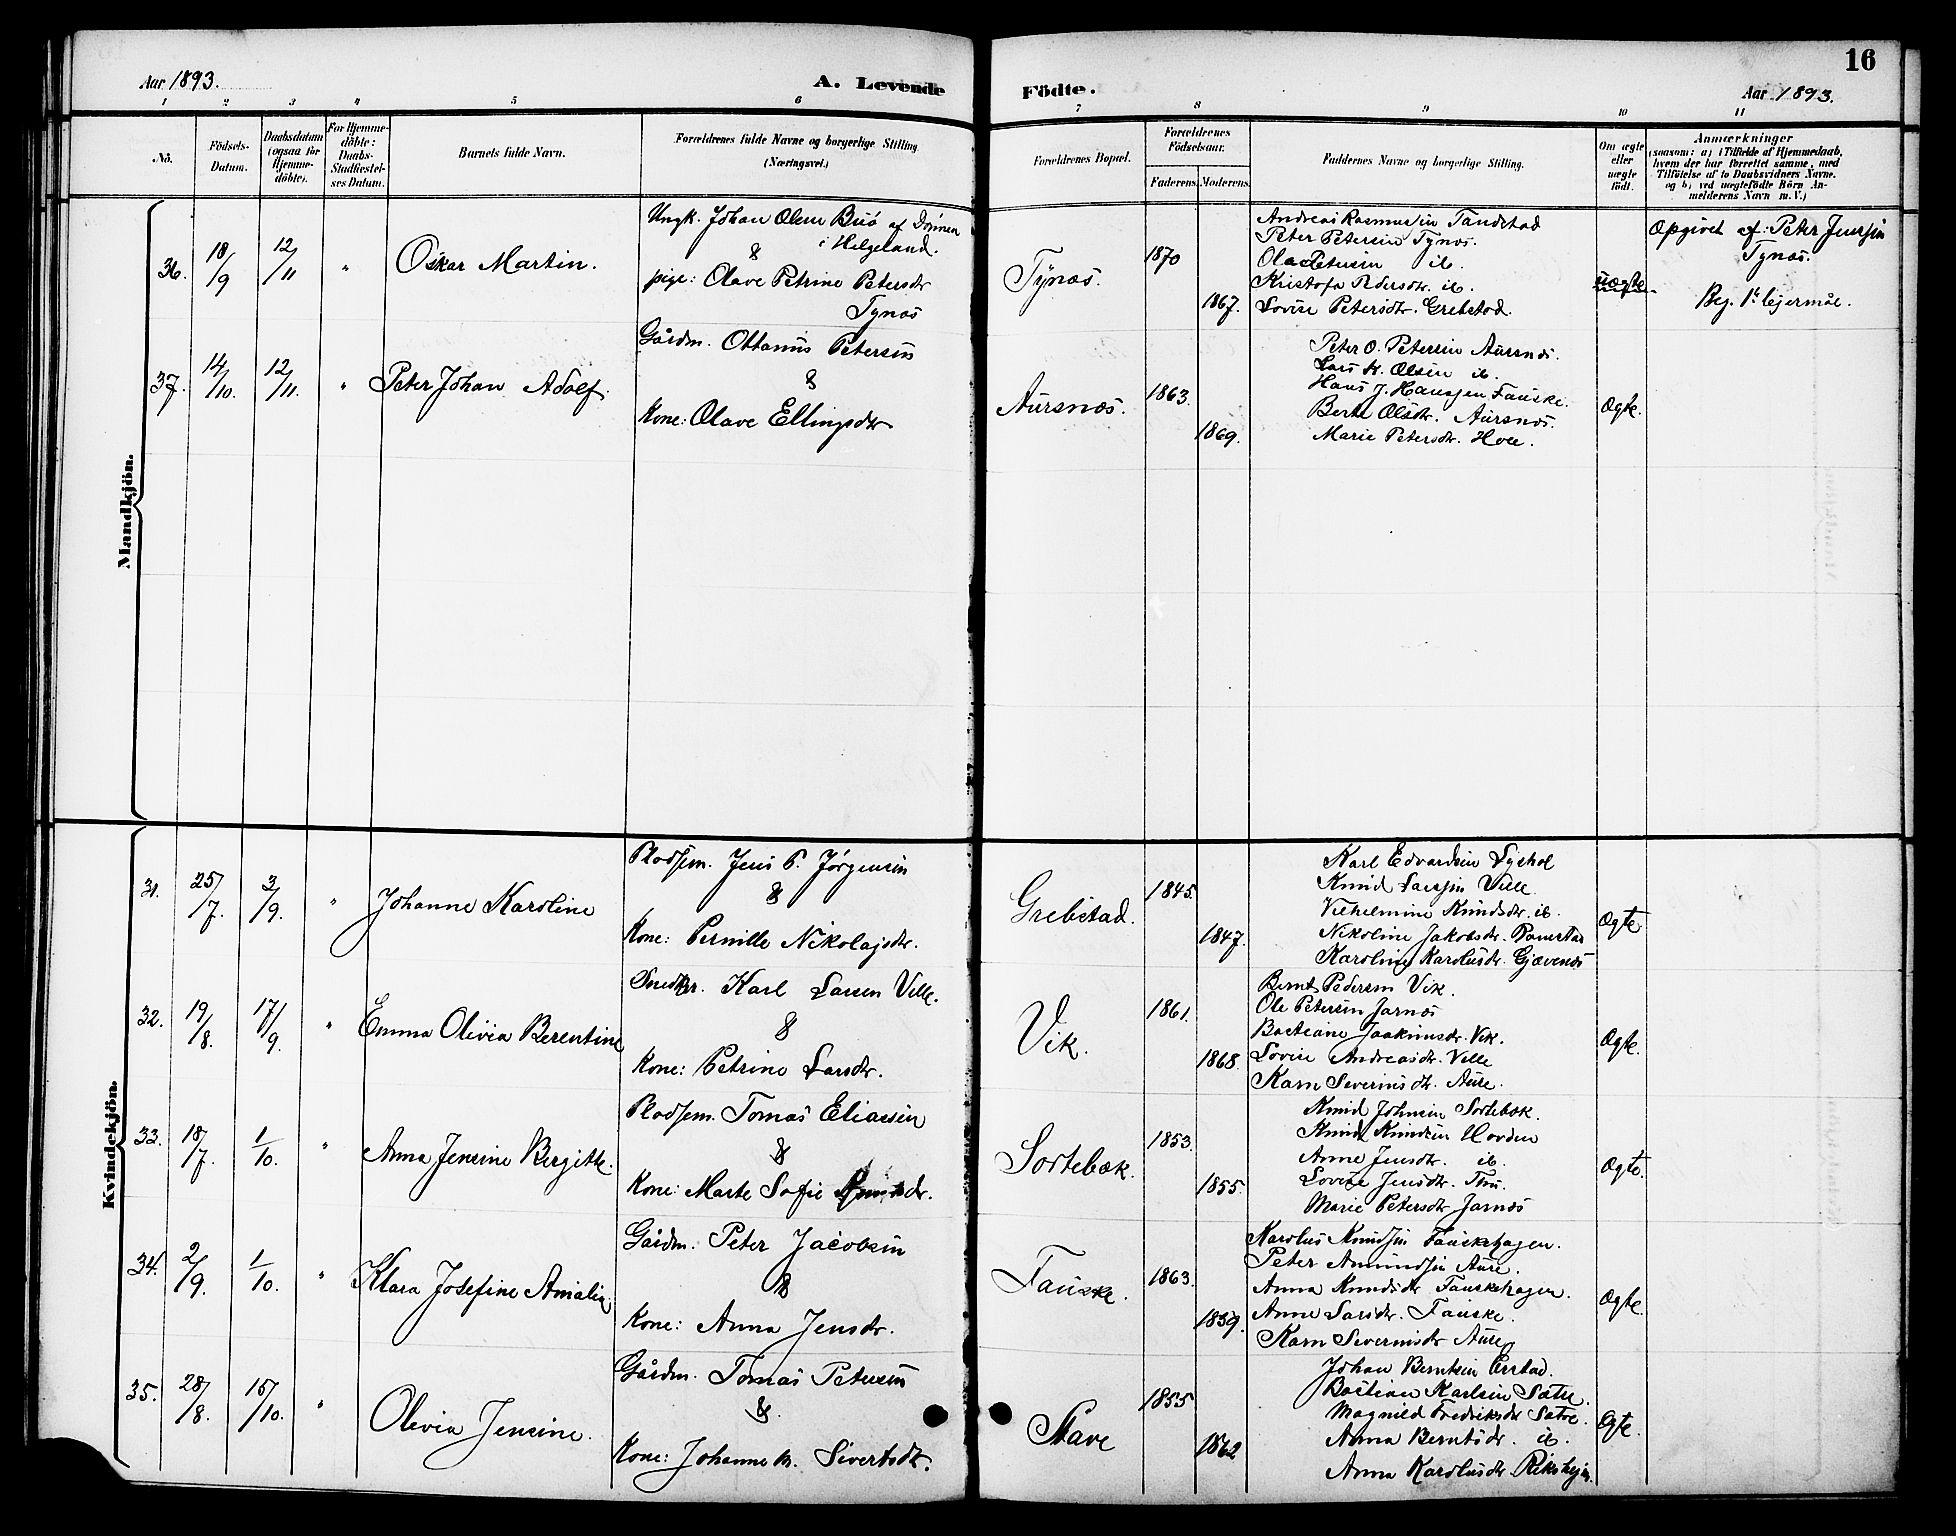 Aar 1893.
A. Levende Födte.
Aar 1893.
16
1 2 3 4 5 6 7 8 9 10 11
No.
Födsels-Datum.
Daabsdatum (ogsaa for Hjemme-döbte).
For Hjemme-döbte: Daabs-Stadfæstel-ses Datum.
Barnets fulde Navn.
Forældrenes fulde Navne og borgerlige Stilling (Næringsvei.)
Forældrenes Bopæl.
Forældrenes Födselsaar.
Faderens. Moderens.
Faddernes Navne og borgerlige Stilling.
Om ægte eller uægte födt.
Anmærkninger
(saasom: a) i Tilfælde af Hjemmedaab,
hvem der har forrettet samme, med
Tilföielse af to Daabsvidners Navne.
og b) ved uægtefödte Börn An-
melderens Navn m. V.)
Mandkjön.
36. 18/9 12/11 "
Oskar Martin.
Ungk. Johan Olsen Buö af Dönnen
i Helgeland.
&
pige: Olave Petrine Petersdtr
Tynæs
Tynæs.
1870
1867.
Andreas Rasmussen Tandstad
Peter Petersen Tynæs.
Ola Petersen ib.
Kristofa Pedersdtr. ib.
Lovise Petersdtr. Grebstad.
uægte.
Opgivet af: Peter Jenssen
Tynæs.
Beg. 1ste lejermål.
37. 14/10. 12/11. "
Peter Johan Adolf.
Gårdm. Ottanius Petersen
&
Kone: Olave Ellingsdtr.
Aursnæs.
1863.
1869.
Peter O. Petersen Aursnæs.
Lars K. Olsen ib.
Hans J. Hanssen Fauske.
Berte Olsdtr. Aursnæs.
Marie Petersdtr. Hole.
Ægte.
Kvindekjön.
31. 25/7. 3/9. "
Johanne Karoline
Pladsem. Jens P. Jørgensen
&
Kone: Pernille Nikolajsdtr.
Grebstad.
1845.
1847.
Karl Edvardsen Lyshol
Knud Larssen Velle.
Vilhelmine Knudsdtr. ib.
Nikoline Jakobsdtr. Ramstad
Karoline Karolusdtr. Gjævenæs
Ægte
32. 19/8. 17/9. "
Emma Olivia Berentine
Snedker. Karl Larsen Velle.
&
Kone: Petrine Larsdtr.
Vik.
1861.
1868.
Bernt Pedersen Vik.
Ole Petersen Jarnæs
Bastiane Joakimsdtr. Vik.
Lovise Andreasdtr. Velle
Karn Severinsdtr. Aure.
Ægte.
33. 18/7. 1/10. "
Anna Jensine Bergitte.
Pladsem. Tomas Eliassen
&
Kone: Marte Sofie
Sortebæk.
1853.
1855.
Knud Johnsen Sortebæk.
Knud Knudsen Hovden
Anne Jensdtr. ib.
Lovise Jensdtr.
Marie Petersdtr Jarnæs
Ægte.
34. 2/9. 1/10. "
Klara Josefine Amalia.
Gårdm. Peter Jacobsen
&
Kone: Anna Jensdtr.
Fauske.
1863.
1859.
Karolus Knudsen Fauskehagen.
Peter Amundsen Aure.
Anna Knudsdtr Fauskehagen.
Anne Larsdtr. Fauske.
Karn Severinsdtr Aure
Ægte.
35. 28/8. 15/10. "
Olivia Jensine.
Gårdm. Tomas Petersen
&.
Kone: Johanne M. Sivertsdtr.
Stave
1855
1862
Johan Berntsen Erstad.
Bastian Karlsen Sætre.
Magnild Fredriksdtr Sætre.
Anna Berntsdtr. ib.
Anna Karolusdtr Riksheim.
Ægte.